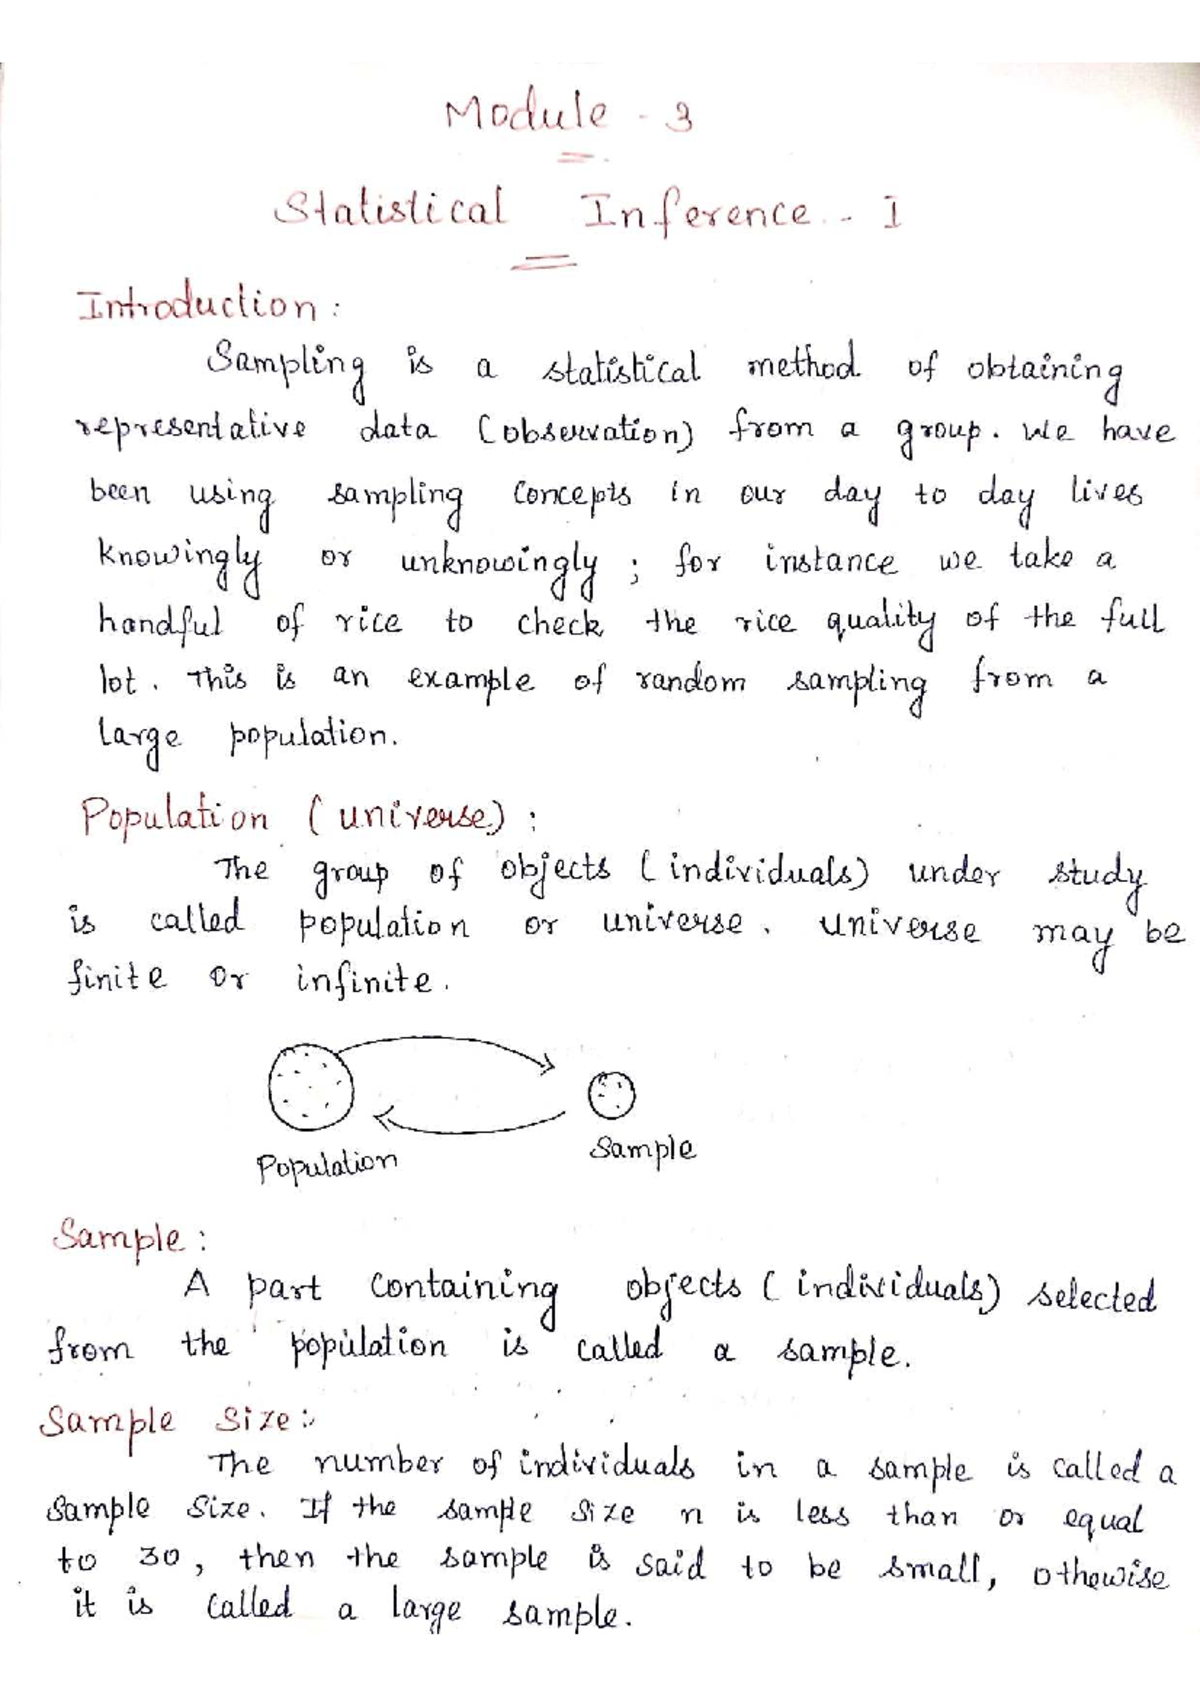 Module - 3
Statistical Inference - I
Introduction:
Sampling is a statistical method of obtaining
representative data (observation) from a group. We have
been using sampling concepts in our day to day lives
knowingly or unknowingly; for instance we take a
handful of rice to check the rice quality of the full
lot. This is an example of random sampling from a
large population.
Population (universe):
The group of objects (individuals) under study
is called population or universe. universe may be
finite or infinite.
Population
Sample
Sample:
A part containing objects (individuals) selected
from the population is called a sample.
Sample Size:
The number of individuals in a sample is called a
sample size. If the sample size n is less than or equal
to 30, then the sample is said to be small, otherwise
it is called a large sample.